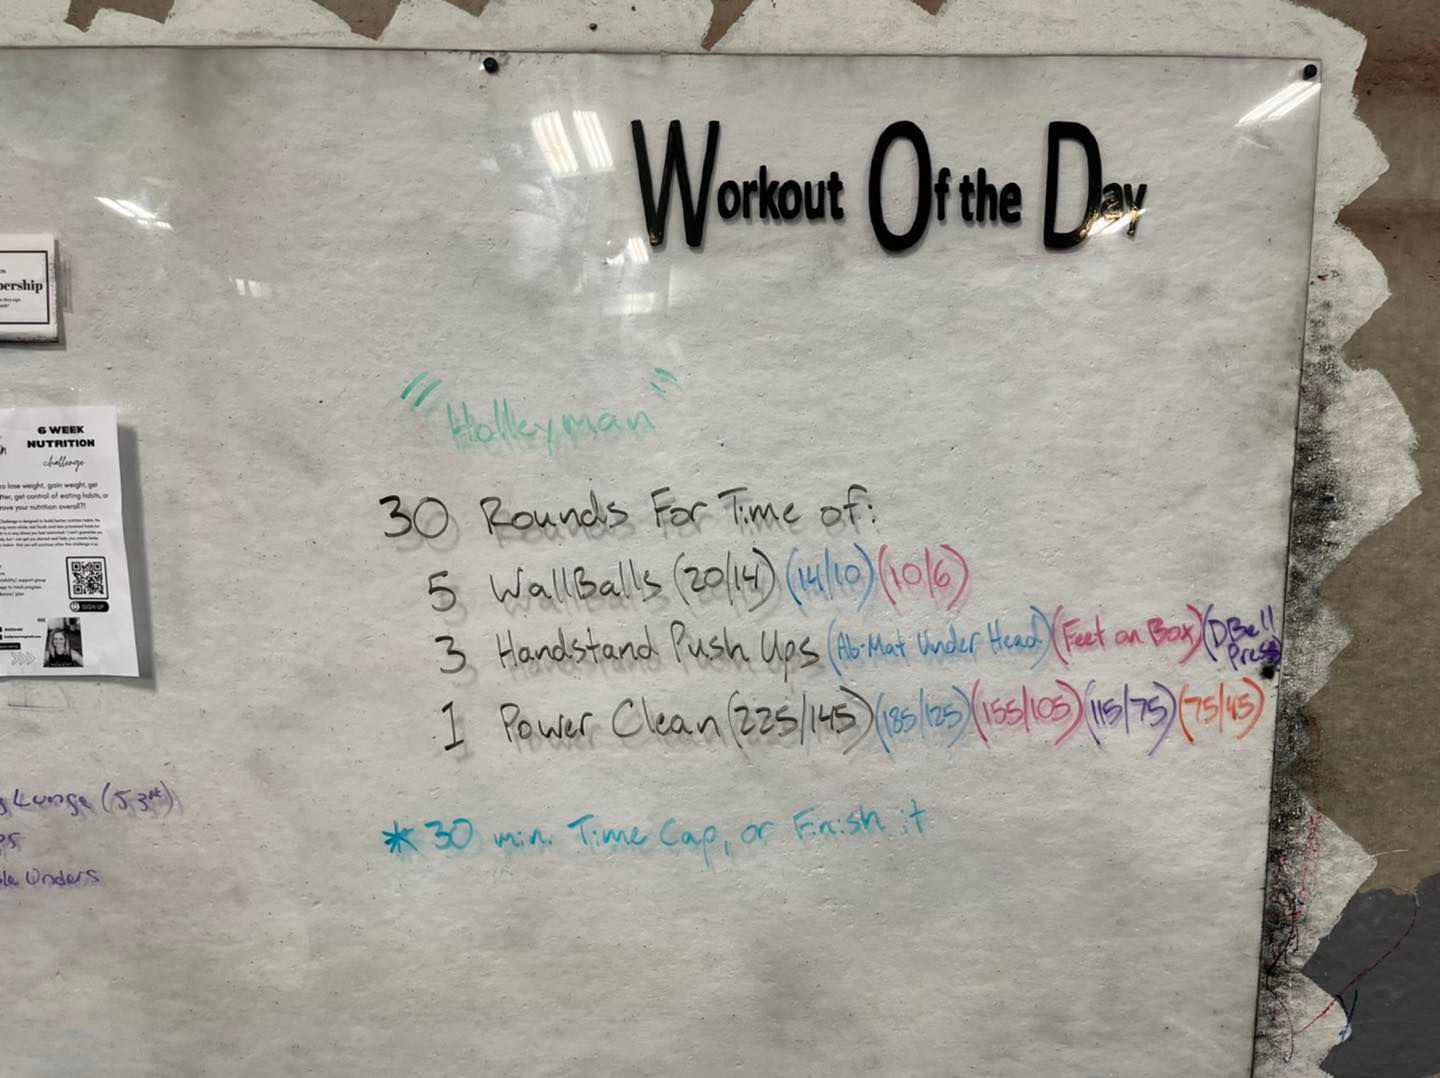 Workout Of the Day
pership
6 WEEK
NUTRITION
challenge
o lose weight, gain weight, get
tter, get control of eating habits, or
rove your nutrition overall?!
SIGN UP
"Holleyman"
30 Rounds For Time of:
5 WallBalls (20/14) (14/10) (10/6)
3 Handstand Push Ups (Ab-Mat Under Head) (Feet on Box) (DBell Press)
1 Power Clean (225/145) (185/125) (155/105) (115/75) (75/45)
*30 min. Time Cap, or Finish it
Lunge (
Unders